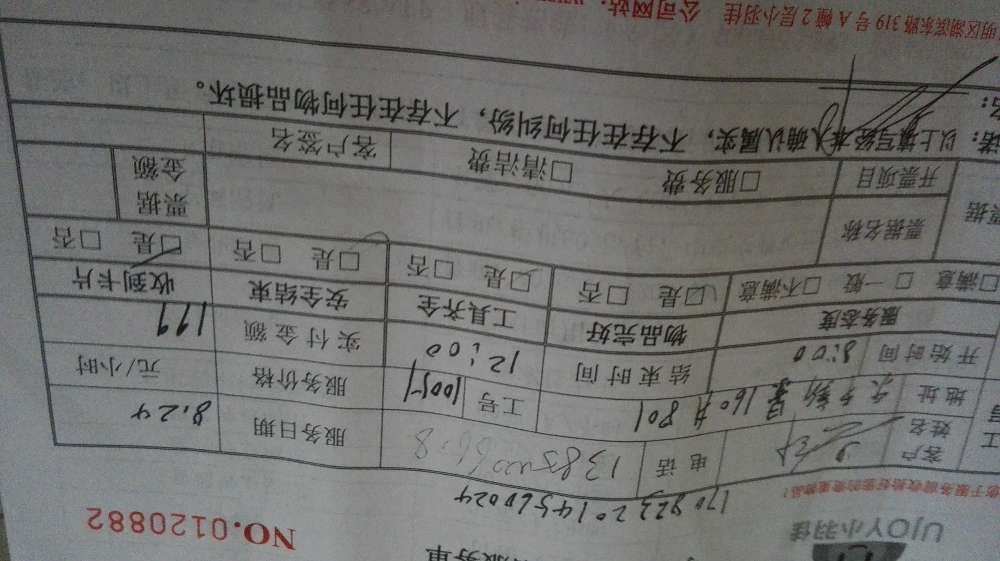 服务单
UJOY小羽佳
NO.0120882
1708232014560024
客户姓名 电话 服务日期 8.24
地址 160号801 工号 10051 服务价格 元/小时
开始时间 8:00 结束时间 12:00 实付金额 199
服务态度 物品完好 工具齐全 安全结束 收到卡片
□满意 □一般 □不满意 □是 □否 □是 □否 □是 □否 □是 □否
票据名称 票据金额
开票项目 □服务费 □清洁费 客户签名
诺：以上填写经本人确认属实，不存在任何纠纷，不存在任何物品损坏。
明区湖滨东路 319 号 A 幢 2 层小羽佳 公司网站：